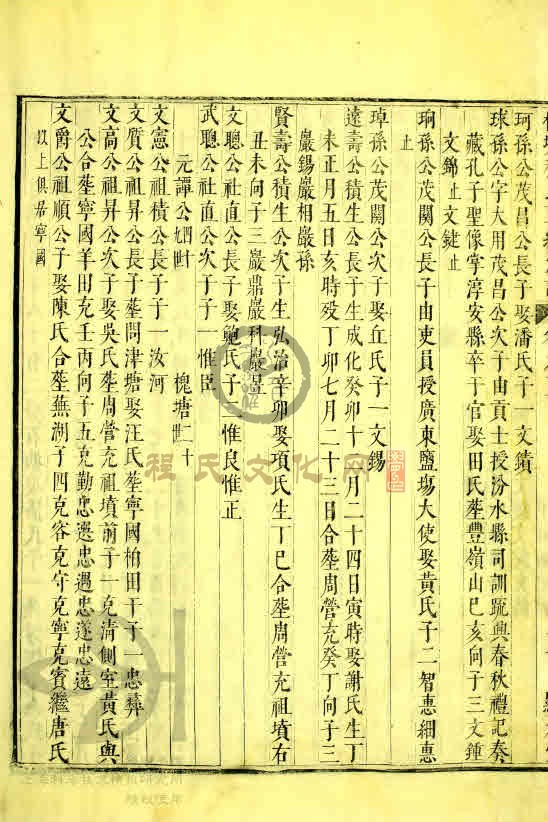 珂孫公茂昌公長子娶潘氏子一文鑌
球孫公字大用茂昌公次子由貢士授汾水縣司訓䟽興春秋禮記奏
藏孔子聖像寧淳安縣卒于官娶田氏塟豐嶺山巳亥向子三文鍾
文錦止文鍵止
珦孫公茂闗公長子由吏員授廣東鹽塲大使娶黃氏子二智惠細惠
止
琸孫公茂闗公次子娶丘氏子一文錫
遠壽公積生公長子生成化癸卯十一月二十四日寅時娶謝氏生丁
未正月五日亥時歿丁卯七月二十三日合塟周營充癸丁向子三
嚴錫嚴相嚴孫
賢壽公積生公次子生弘治辛卯娶項氏生丁巳合塟周營充祖墳右
丑未向子三嚴鼎嚴科嚴昷
文聰公社直公長子娶鮑氏子二惟良惟正
武聰公社直公次子子一惟臣
元譚公 槐塘
文憲公祖積公長子子一汝河
文質公祖昇公長子塟問津塘娶汪氏塟寧國柏田干子一忠彝
文高公祖昇公次子娶吳氏塟周營充祖墳前子一克清側室黃氏與
公合塟寧國羊田充壬丙向子五克勤忠選忠遇忠遂忠遠
文爵公祖順公子娶陳氏合塟蕪湖子四克容克守克寧克賓繼唐氏
以上俱居寧國
程氏文化网